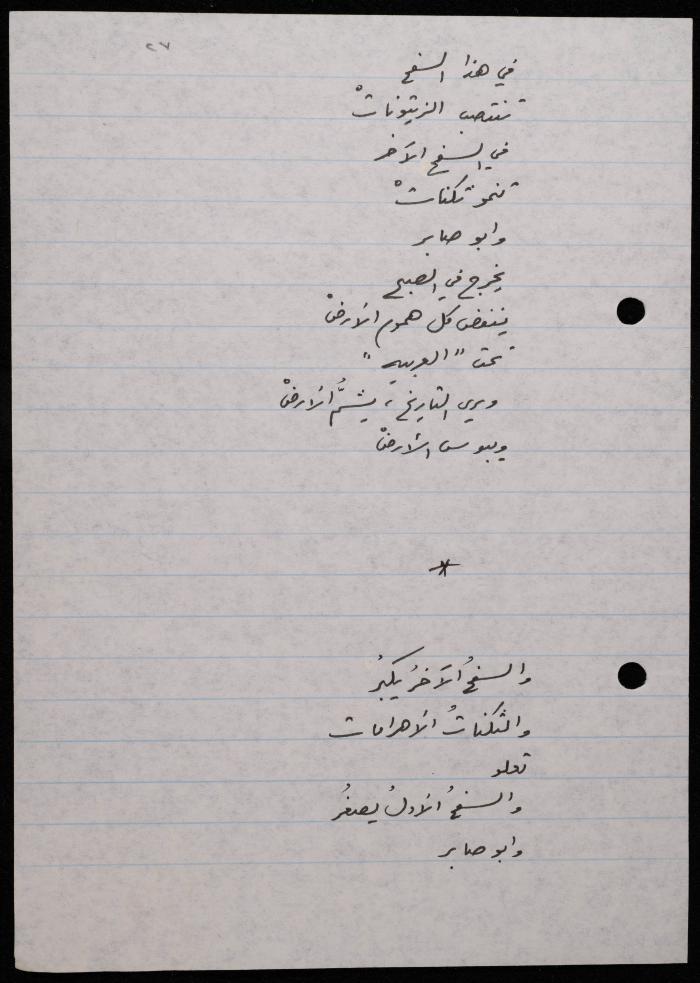 ٢٧
في هذا السفح
تنتصب الزيتوناتْ
في السفح الآخر
تنمو ثكناتْ
وابو صابر
يخرج في الصبح
ينفض كل هموم الأرضْ
تحت "العربيه"
ويري التاريخ، يشمُّ الأرضْ
ويبوس الأرضْ
*
والسفحُ الآخرُ يكبرُ
والثكناتُ الأهرامات
تعلو
والسفحُ الأولُ يصغرُ
وابو صابر